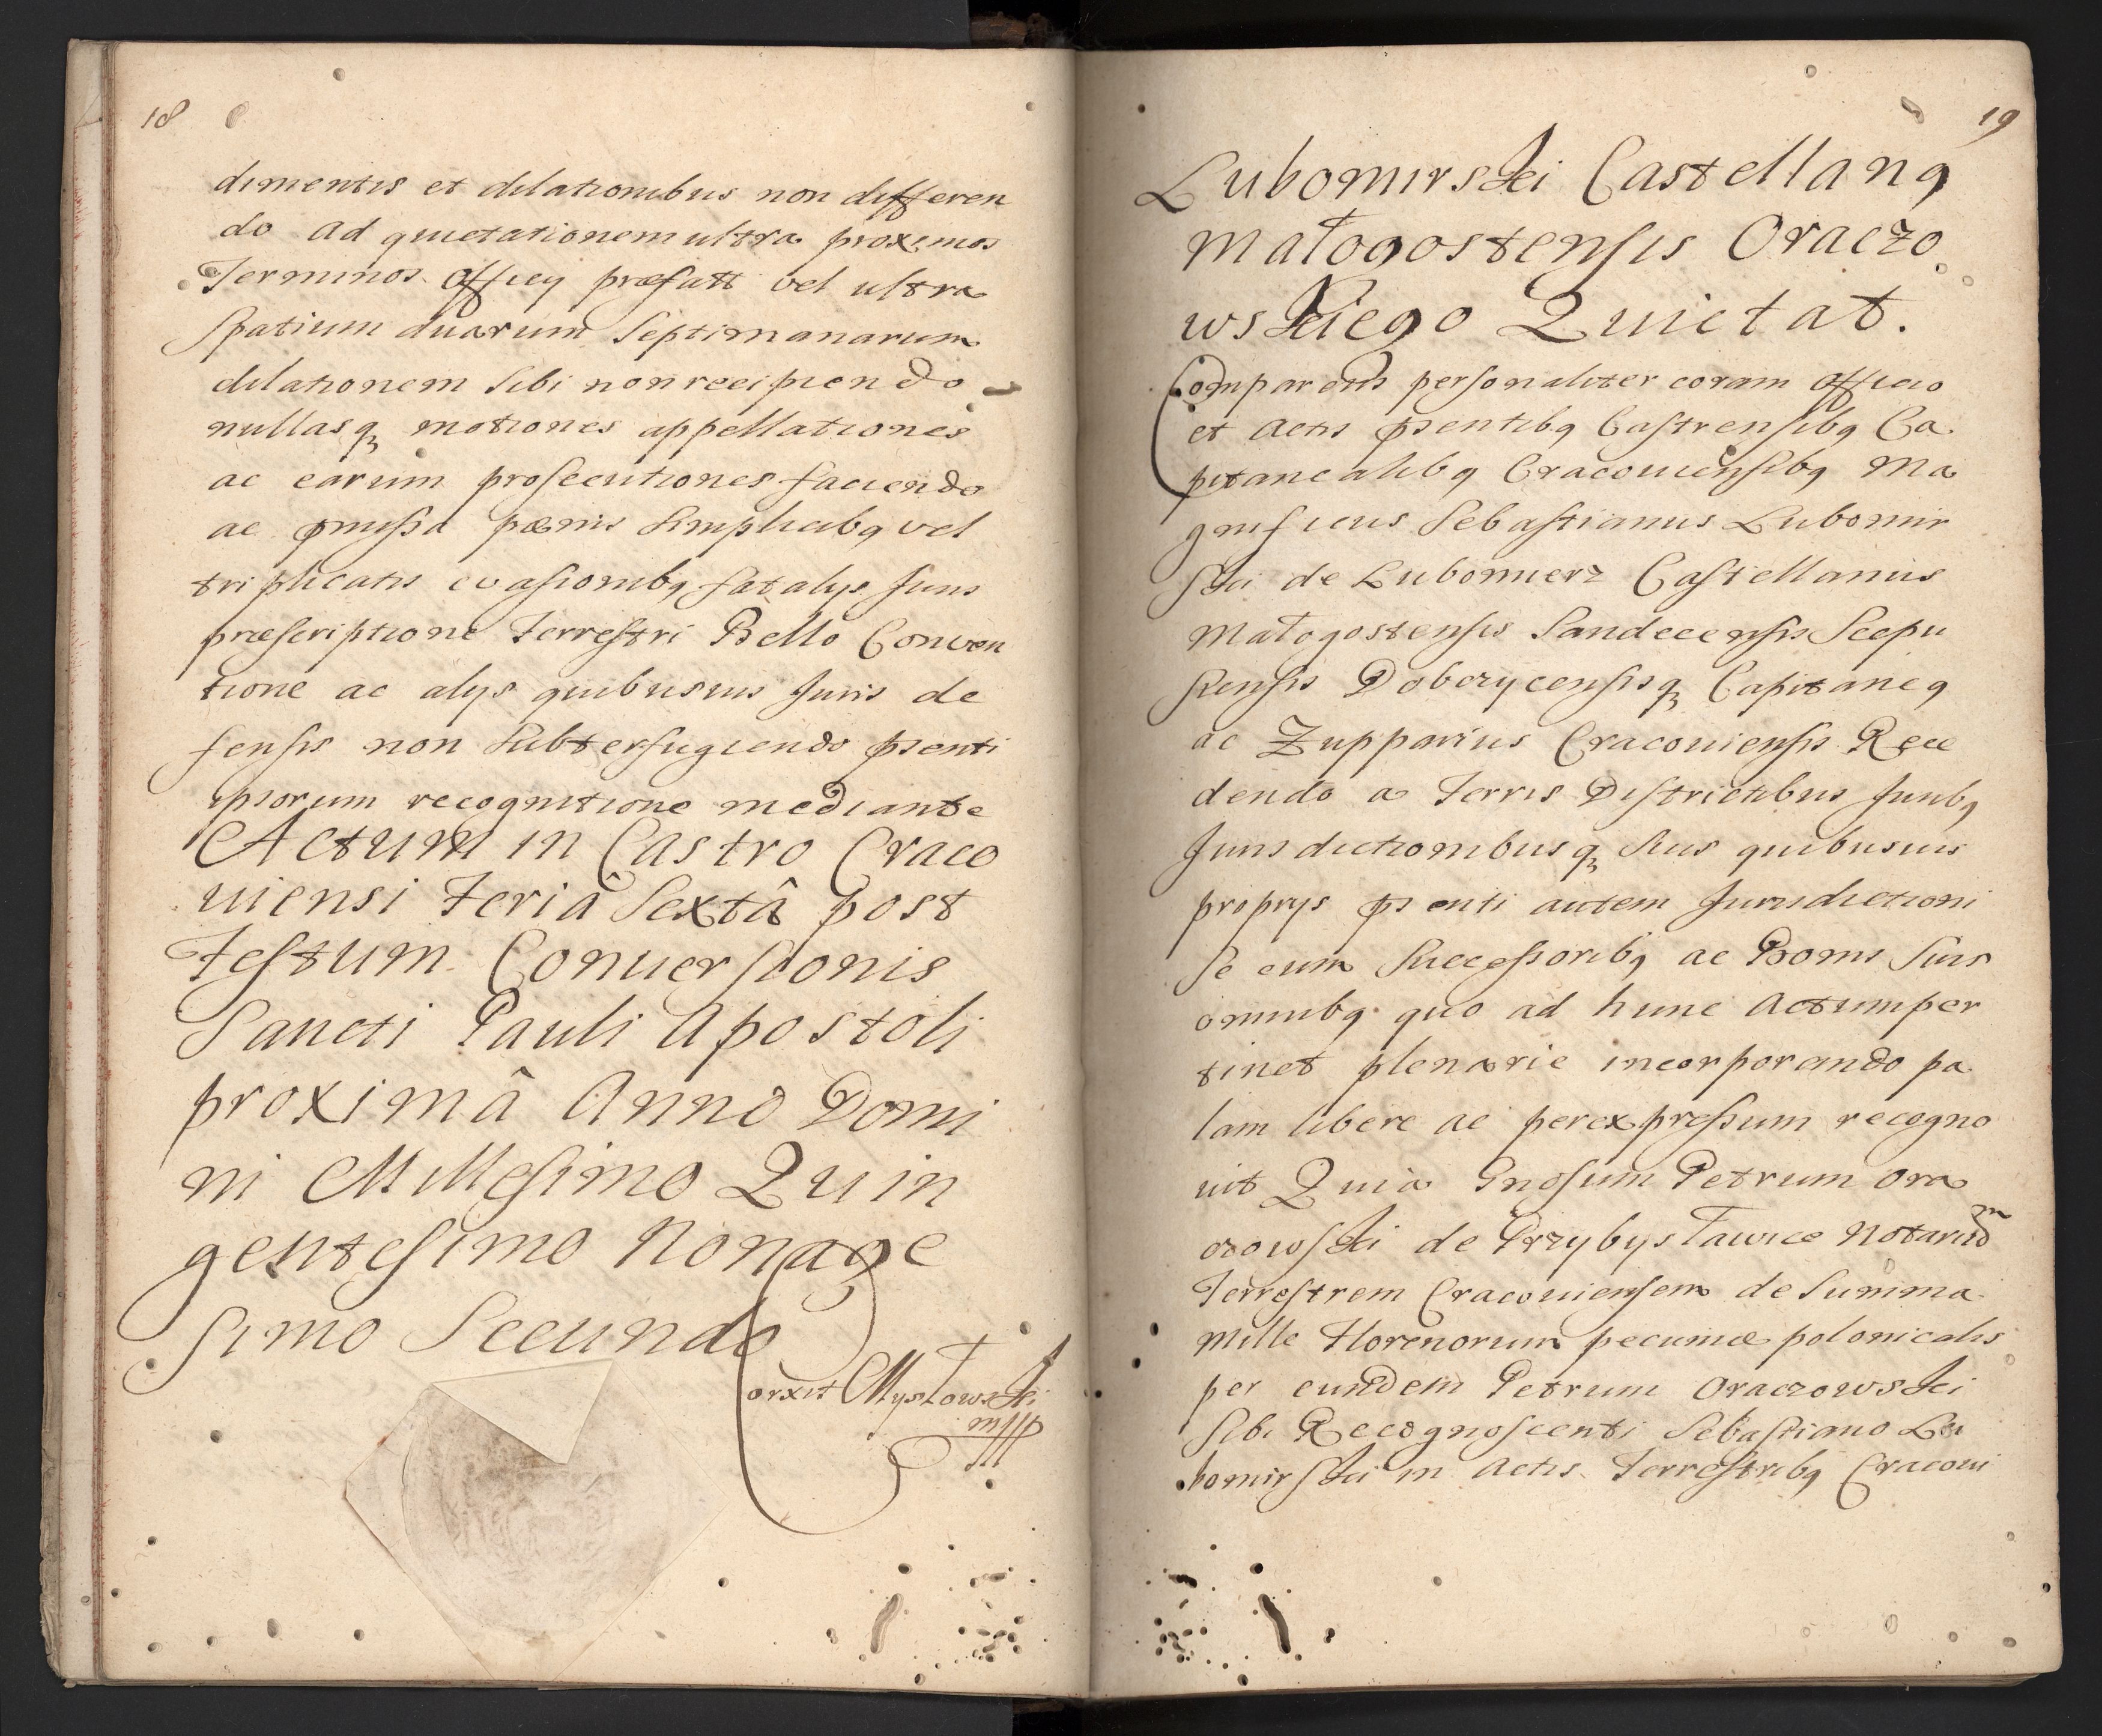 18
dimentis et dilationibus non differen
do ad quietationem ultra proximos
Terminos Officij præfati vel ultra
Spatium duarum Septimanarum
dilationem Sibi non recipiendo
nullasq3 motiones appellationes
ac earum prosecutiones faciendo
ac pmissa pænis Simplicibq vel
triplicatis evasionibq fatalijs Juris
præscriptione Terrestri Bello Conven
tione ac alijs quibusuis Juris de
fensis non Subterfugiendo psenti
ipsorum recognitione mediante
Actum in Castro Craco
uiensi Feriâ Sextâ post
Festum Conuersionis
Sancti Pauli Apostoli
proximâ Anno Domi
ni Millesimo Quin
gentesimo Nonage
simo Secundo
Corxit Mysłowski
mpp
19
Lubomirski Castellanq
Małogostensis Oraczo
wskiego Quietat.
Comparens personaliter coram Officio
et Actis psentibq Castrensibq Ca
pitanealibq Cracouiensibq Ma
gnificus Sebastianus Lubomir
ski de Lubomierz Castellanus
Małogostensis Sandecensis Scepu
siensis Dobczycensisq3 Capitaneq
ac Zupparius Cracouiensis Rece
dendo a Terris Districtibus Juribq
Jurisdictionibusq3 Suis quibusuis
proprijs psenti autem Jurisdictioni
Se cum Successoribq ac Bonis Suis
omnibq quo ad hunc Actum per
tinet plenarie incorporando pa
lam libere ac per expressum recogno
uit Quia Gnosum Petrum Ora
czowski de Przybysławice Notarium
Terrestrem Cracouiensem de Summa
Mille Florenorum pecuniæ polonicalis
per eundem Petrum Oraczowski
Sibi Recognoscenti Sebastiano Lu
bomirski in Actis Terrestribq Cracoui